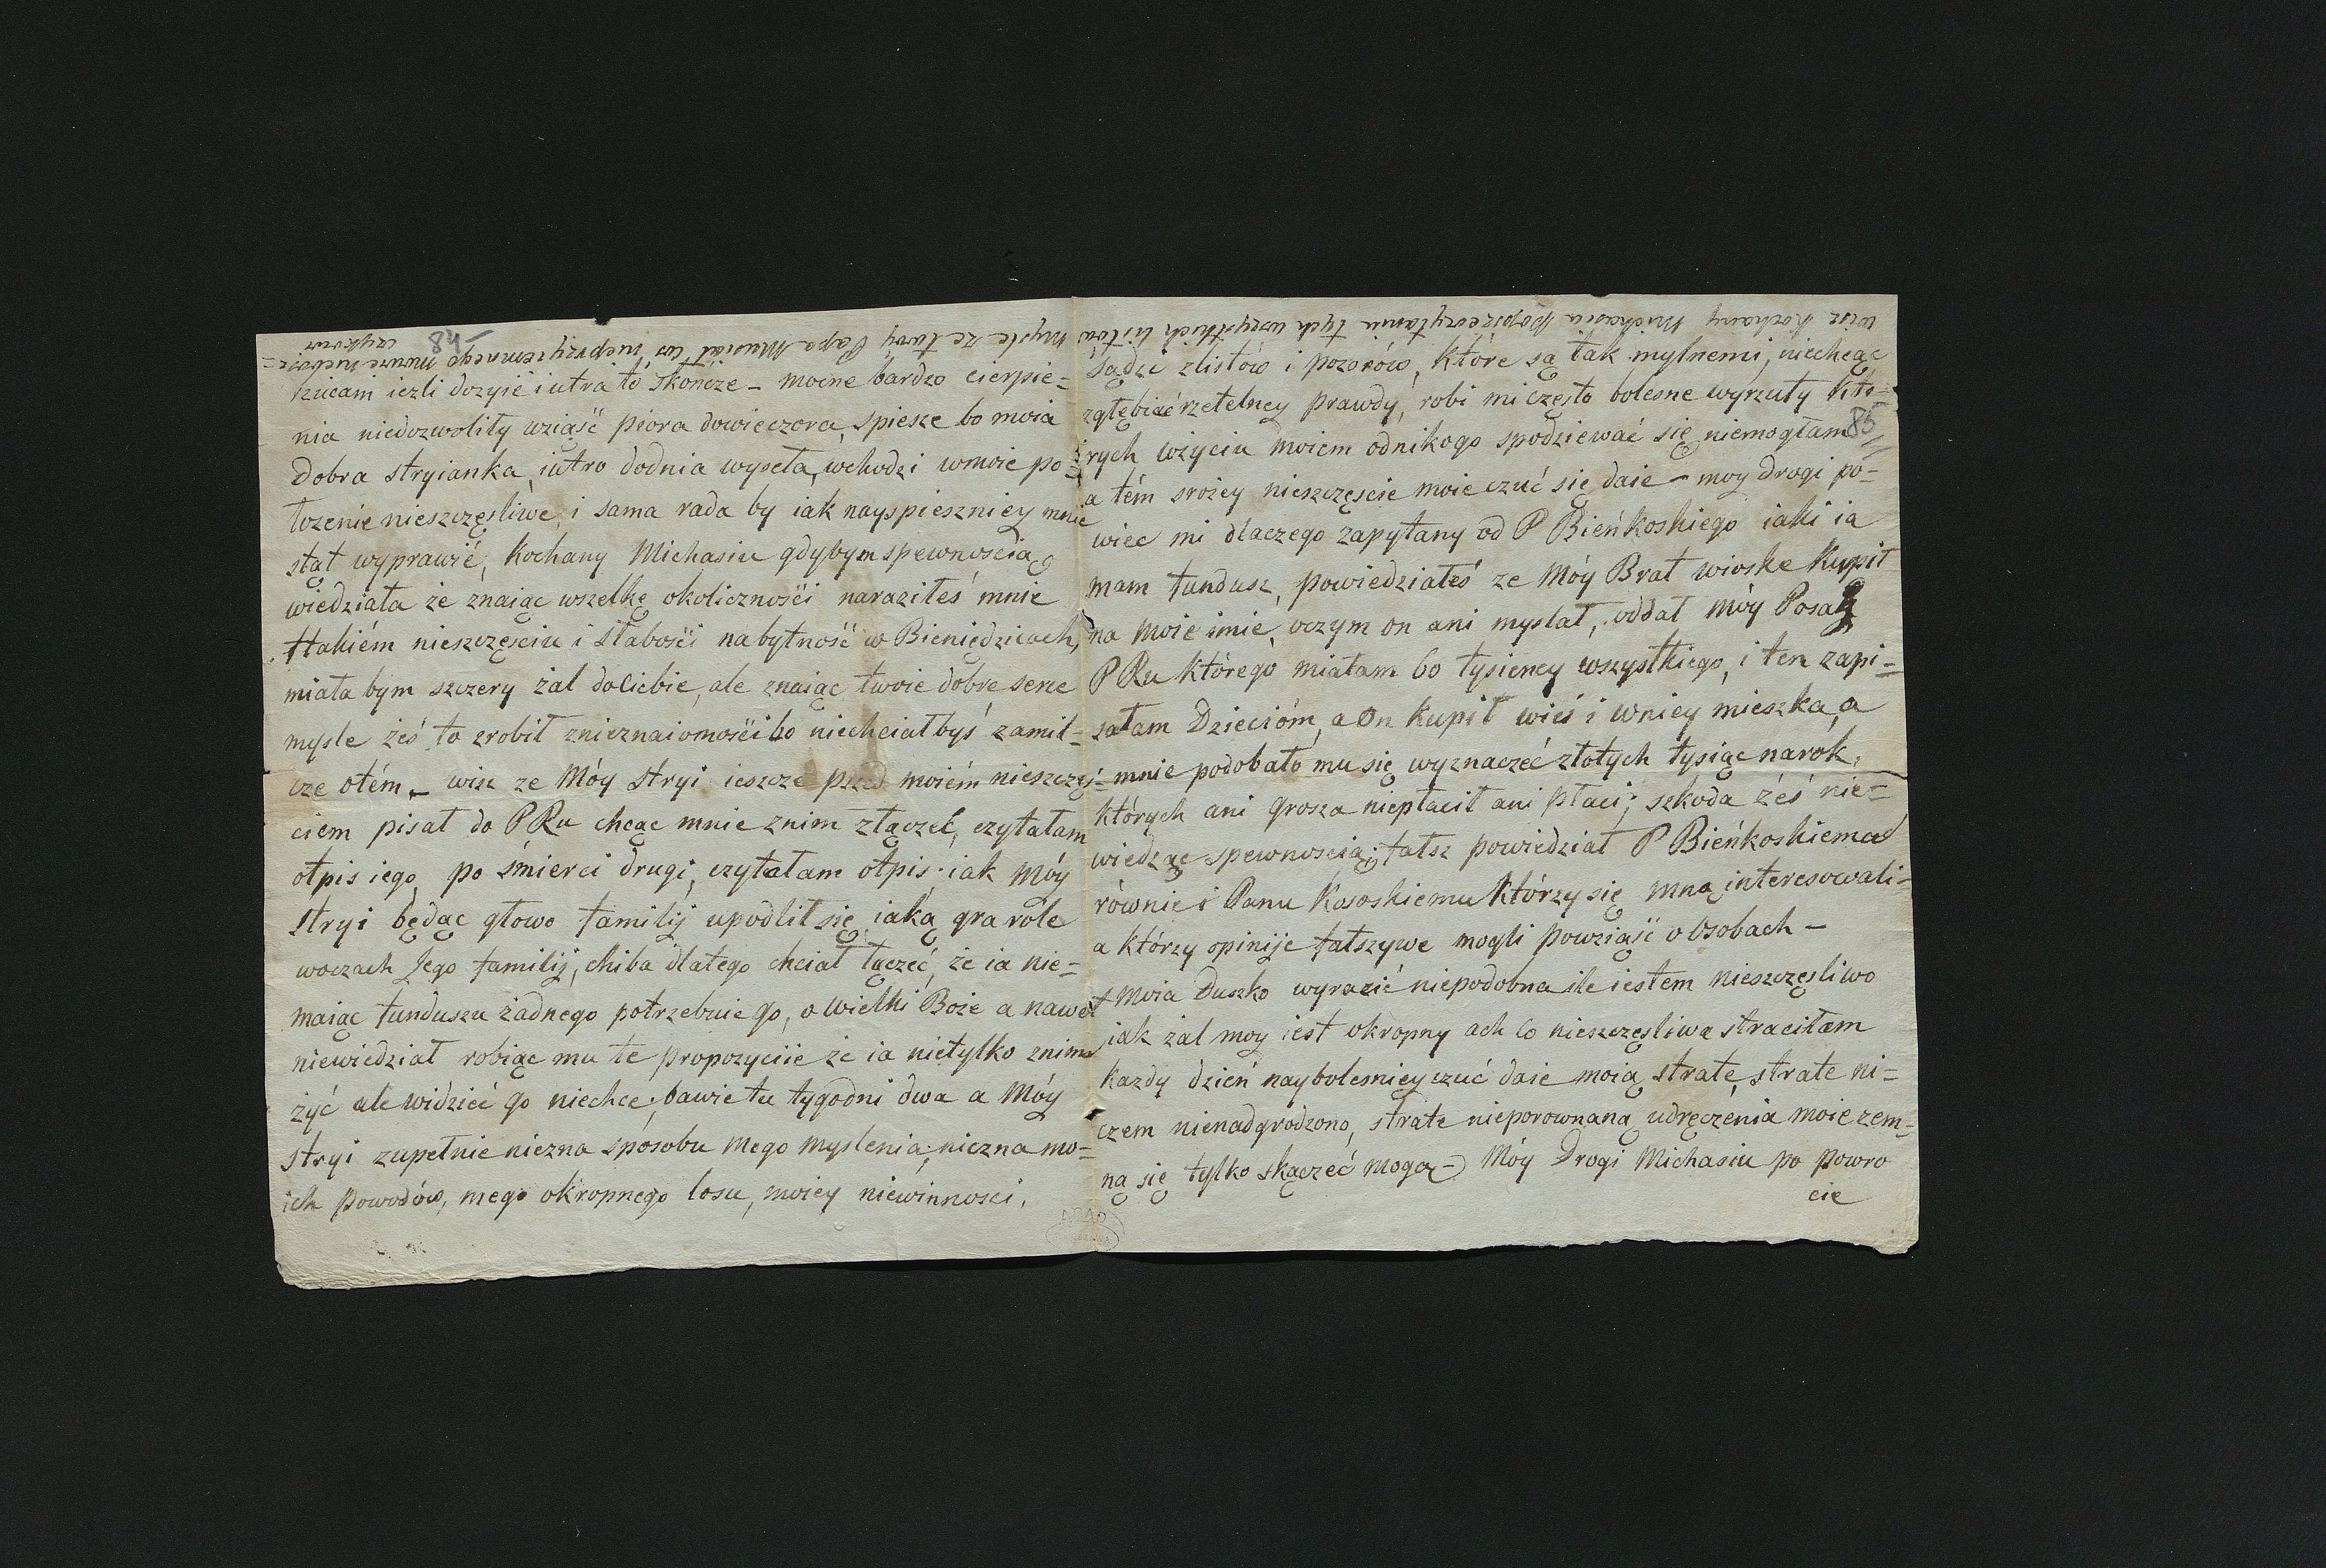 84
rzucam iezli dozyie iutra to skończe - mocne bardzo cierpie=
nia niedozwoliły wziąść pióra dowieczora, spiesze bo moia
dobra stryianka, iutro dodnia wyseła, wchodzi wmoie po=
łozenie nieszczęsliwe, i sama rada by iak nayspieszniey mnie
stąt wyprawić, Kochany Michasiu gdybym spewnoscią
wiedziała że znaiąc wszelkę okolicznośći naraziłeś mnie
wtakiém nieszczęsciu i słabośći nabytność w Bieniędzicach,
miała bym szczery żal dociebie, ale znaiąc twoie dobre serce
mysle żeś to zrobił znieznaiomośći bo niechciałbyś zamil=
cze otém - wisz ze Móy stryi ieszcze przed moiém nieszczęś=
ciem pisał do PRu chcąc mnie znim złączeć, czytałam
otpis iego, po śmierci drugi, czytałam otpis iak Móy
stryi będąc głowo familij upodlił się iaką gra róle
woczach Jego familij, chiba dlatego chciał łączeć, że ia nie=
maiąc funduszu żadnego potrzebuie go, o wielki Boże a nawet
niewiedział robiąc mu te propozyciie że ia nietylko znim
żyć ale widzieć go niechce, bawie tu tygodni dwa a Móy
stryi zupełnie niezna sposobu mego myslenia, niezna mo=
ich powodów, mego okropnego losu, moiey niewinnosci,
wisz Kochany Michasiu poprzeczytaniu tych wszystkich listów
mysle ze twóy Papa Musiał co nieprzyiemnego
85
sądzi zlistów i pozorów, które są tak mylnemi, niechcąc
zgłębiać rzetelney prawdy, robi mi często bolesne wyrzuty któ=
rych wżyciu moiem odnikogo spodziewać się niemogłam
a tém srożey nieszczęscie moie czuć się daie - moy drogi po=
wiec mi dlaczego zapytany od P Bieńkoskiego iaki ia
mam fundusz, powiedziałeś ze Móy Brat wioske Kupił
na moie imie, oczym on ani myslał, oddał móy Posag
PRu którego miałam 60 tysiency wszystkiego, i ten zapi=
sałam Dzieciom, a On kupił wieś i wniey mieszka, a
mnie podobało mu się wyznaczeć złotych tysiąc narok,
których ani grosza niepłacił ani płaci; szkoda żéś nie=
wiedząc spewnoscią, fałsz powiedział P Bieńkoskiemu
równie i Panu Kasoskiemu którzy się mną interesowali=
a którzy opinije fałszywe mogli powziąść o Osobach -
Moia Duszko wyrazić niepodobna ile iestem nieszczęsliwo
iak żal moy iest okropny ach co nieszczęsliwa straciłam
każdy dzień nayboleśniey czuć daie moią strate, strate ni=
czem nienadgrodzono, strate nieporownaną udręczenia moie zem=
ną się tylko skączeć mogą - Móy Drogi Michasiu po powro
cie